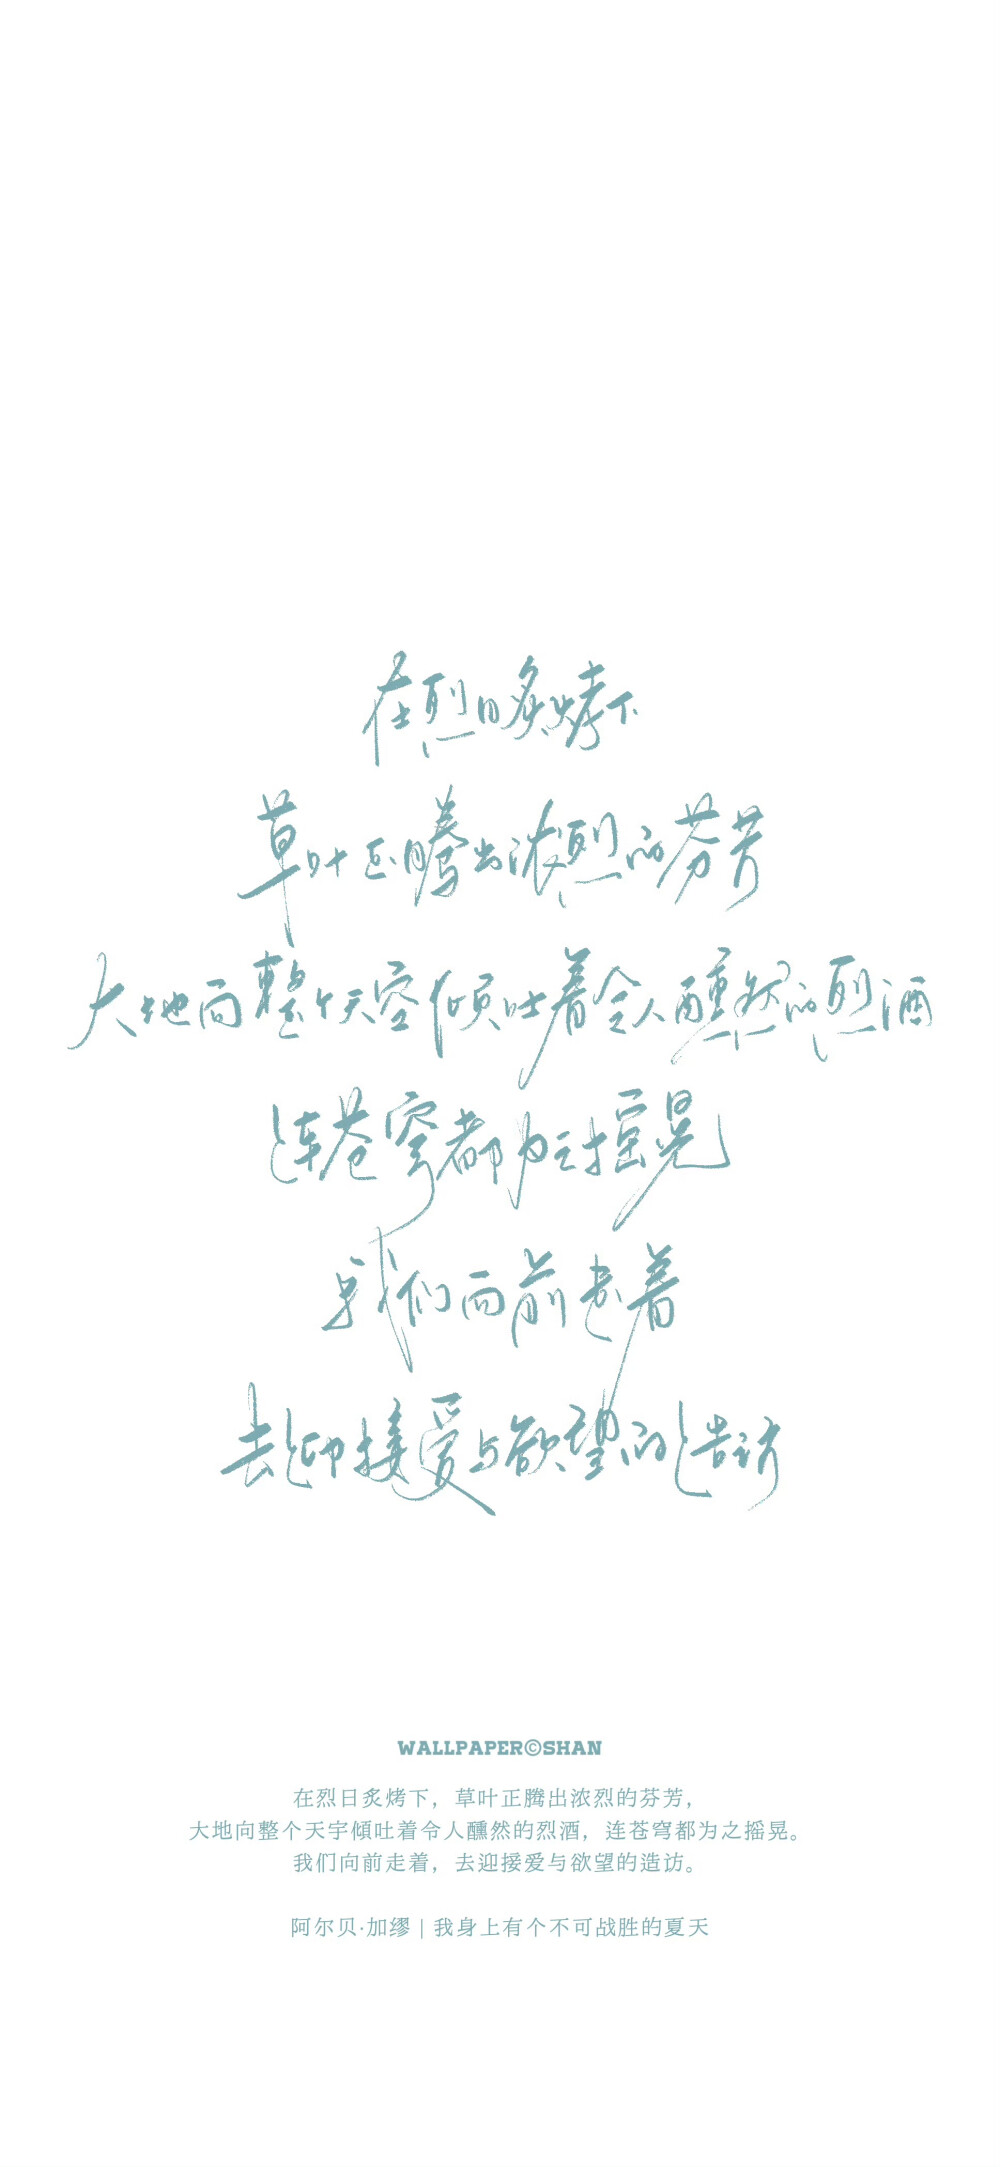 在烈日炙烤下
草叶正腾出浓烈的芬芳
大地向整个天空倾吐着令人醺然的烈酒
连苍穹都为之摇晃
我们向前走着
去迎接爱与欲望的造访
WALLPAPER©SHAN
在烈日炙烤下，草叶正腾出浓烈的芬芳，
大地向整个天宇倾吐着令人醺然的烈酒，连苍穹都为之摇晃。
我们向前走着，去迎接爱与欲望的造访。
阿尔贝·加缪 | 我身上有个不可战胜的夏天